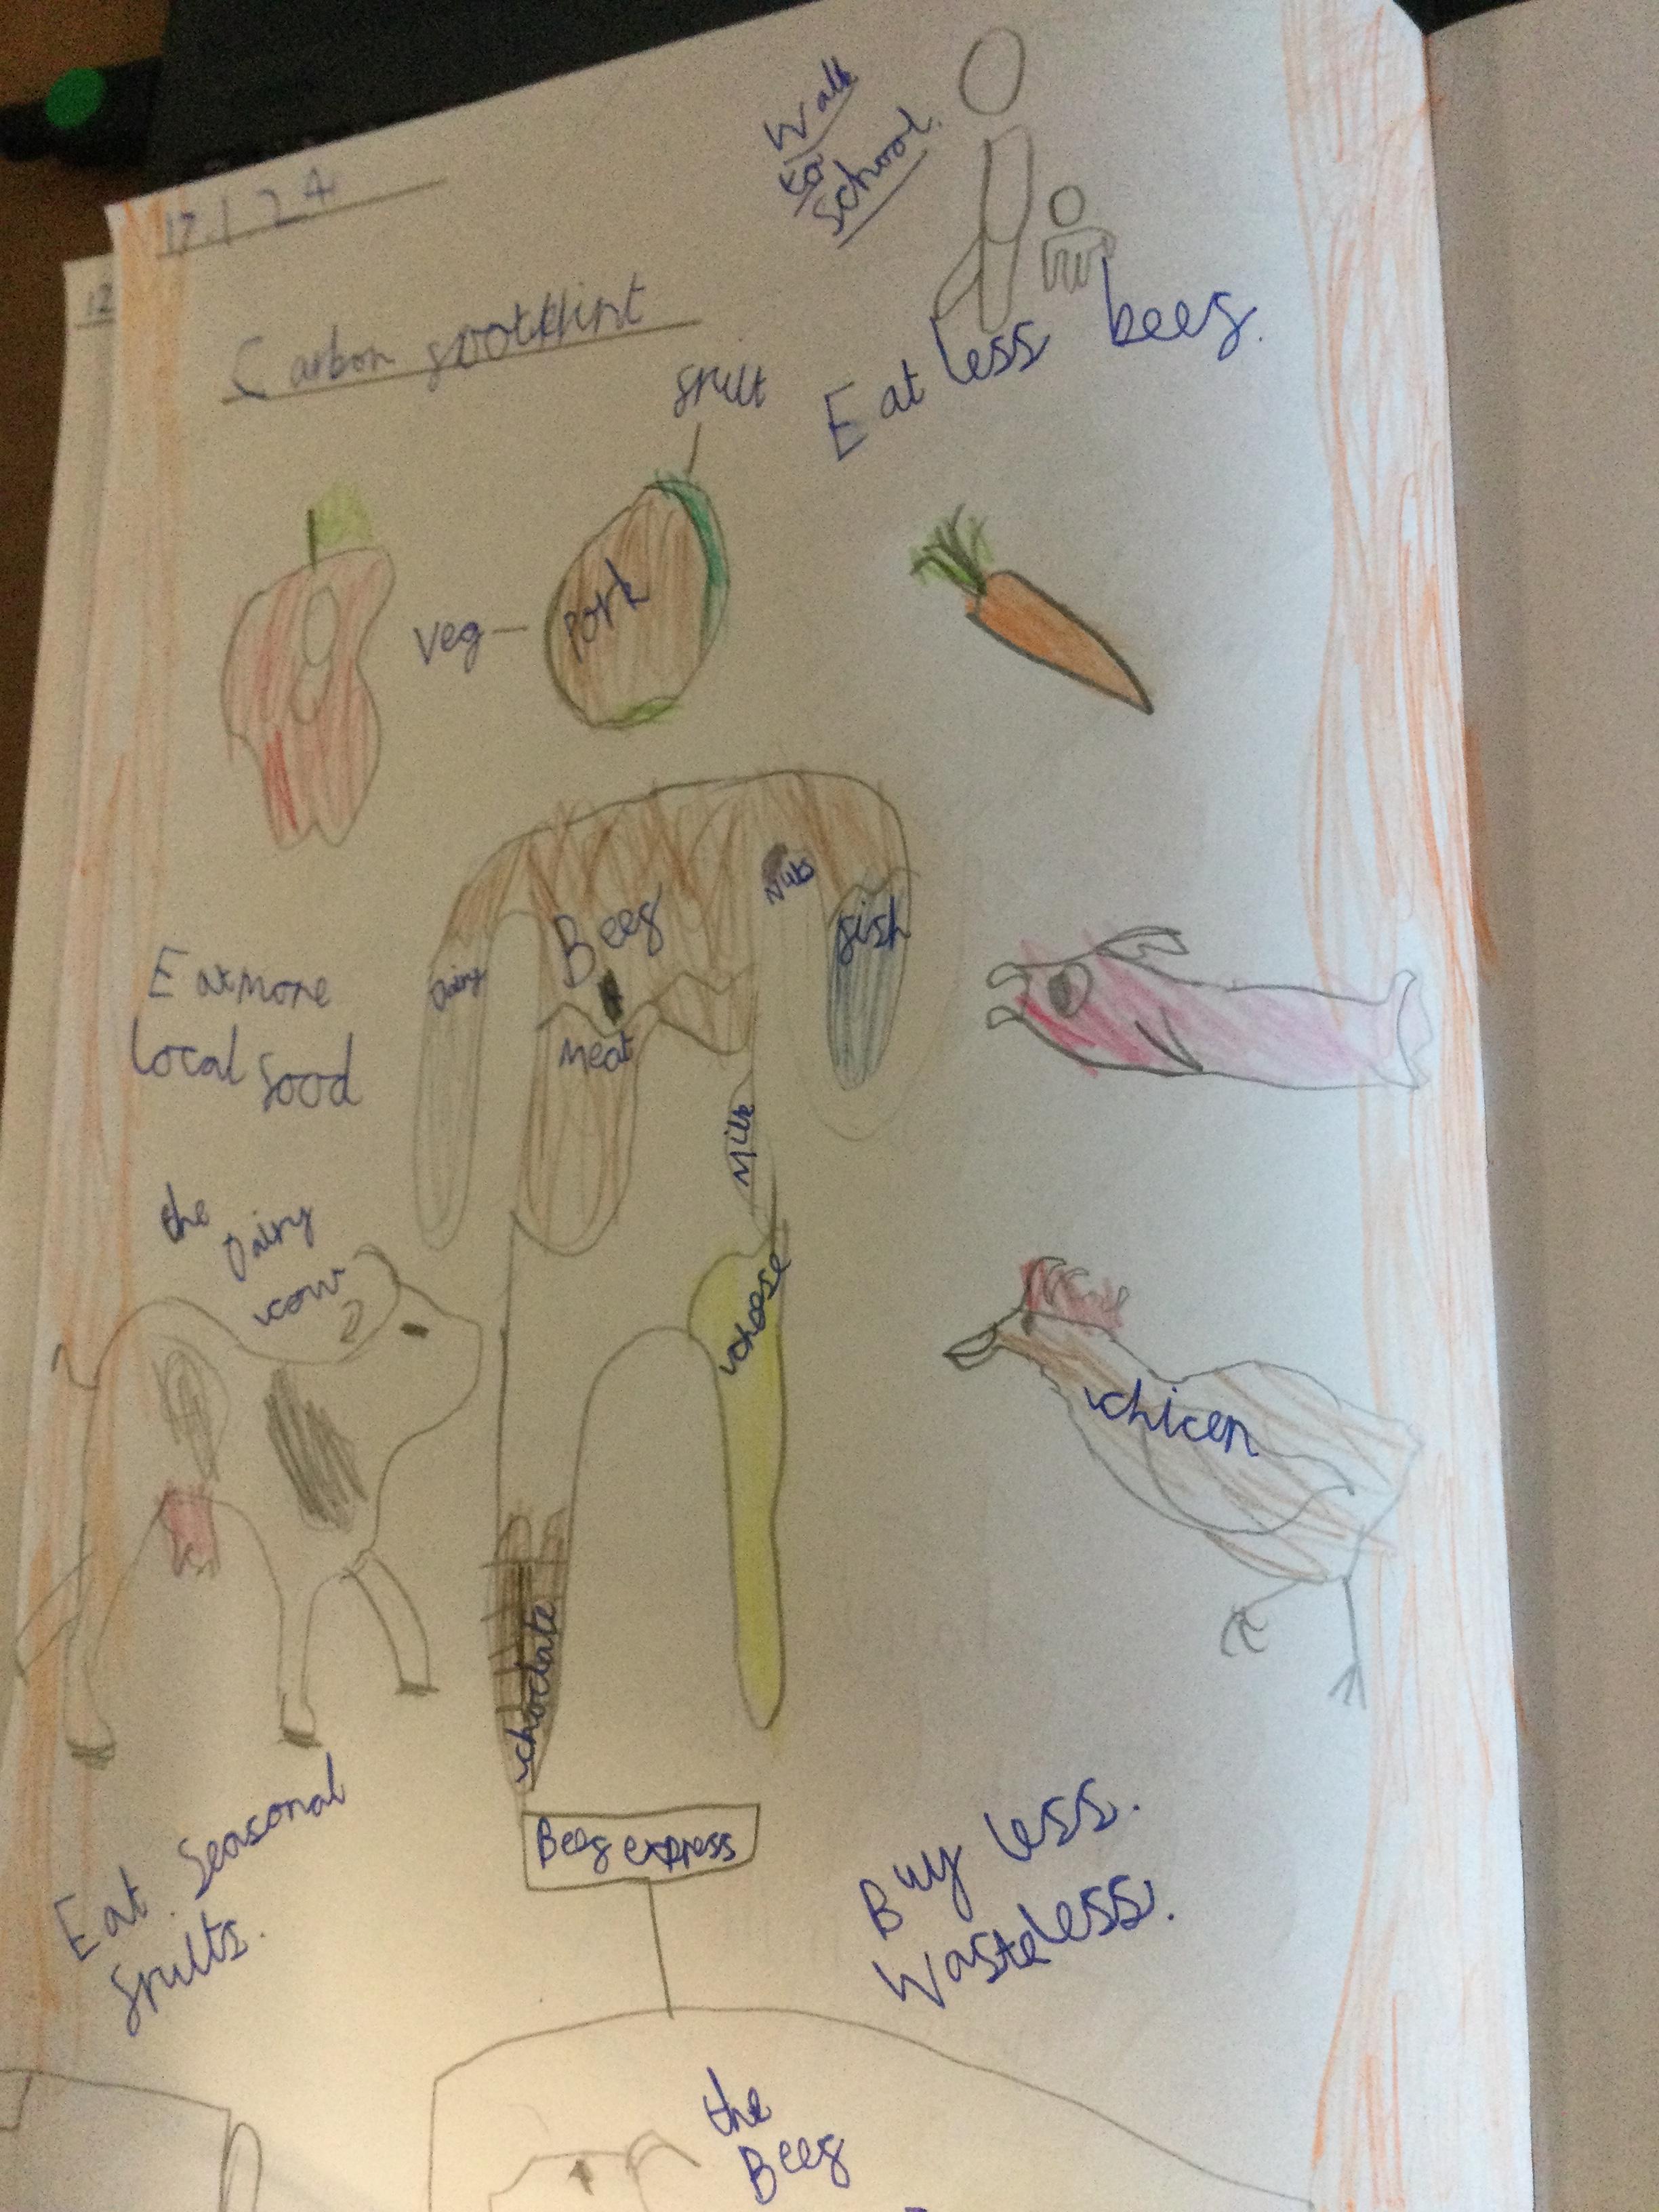 17.1.24
Walk
to
School.
Carbon footprint
fruit
Eat less beef.
Veg
Pork
Nuts
Beef
fish
Dairy
Meat
Eat more
local food
Milk
the
Dairy
cow
cheese
chicen
choclate
Eat Seasonal
fruits.
Beef express
Buy less.
Waste less.
the
Beef
12